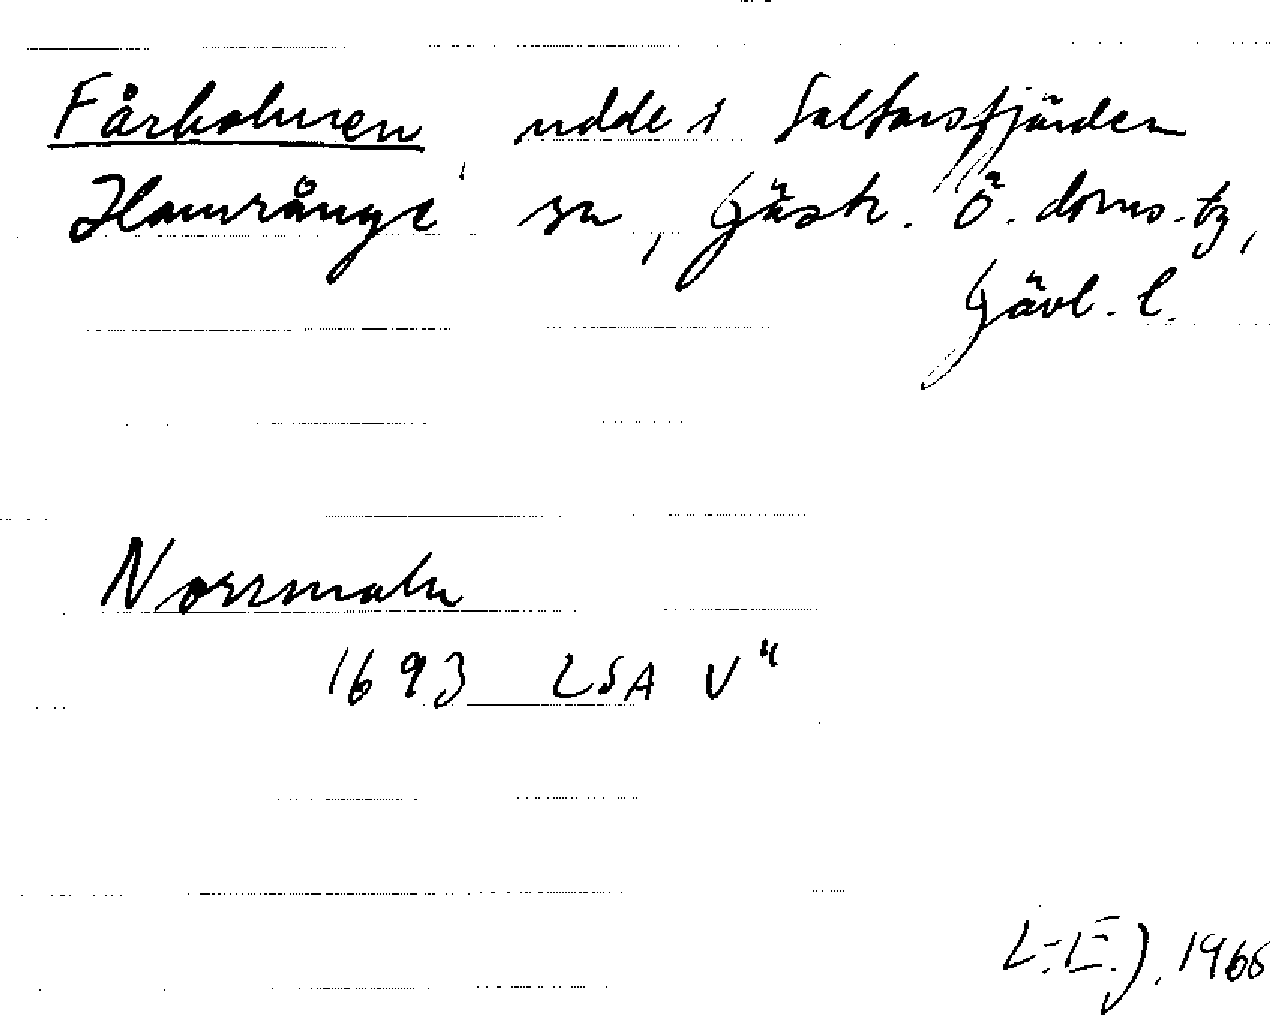 Fårholmen, udde i Saltarsfjärden
Hamrånge sn, Gästr. Ö. doms.-tg,
Gävl. l.
Norrmaln
1693 LSA V"
L-E.J. 1966